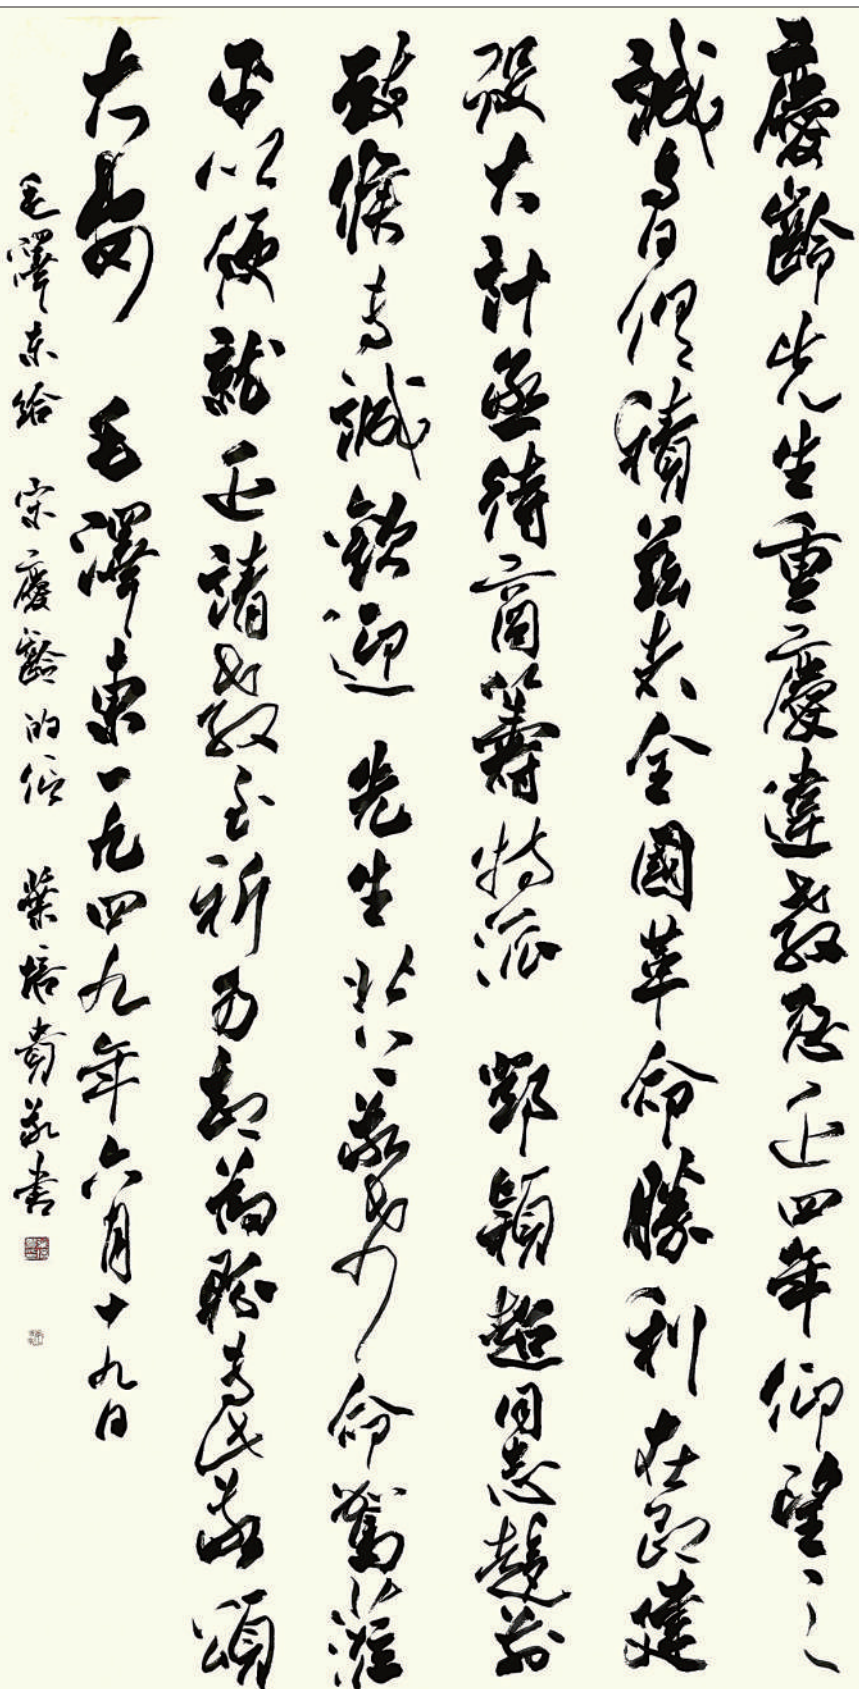 慶齡先生重慶違教忽近四年仰望之
誠與日俱積兹者全國革命勝利在即建
設大計亟待商籌特派 鄧穎超同志趨前
致候專誠歡迎 先生北上敬希命駕蒞
平以便就近請教至祈勿却爲盼專此敬頌
大安 毛澤東一九四九年六月十九日
毛澤東給 宋慶齡的信 葉培貴敬書